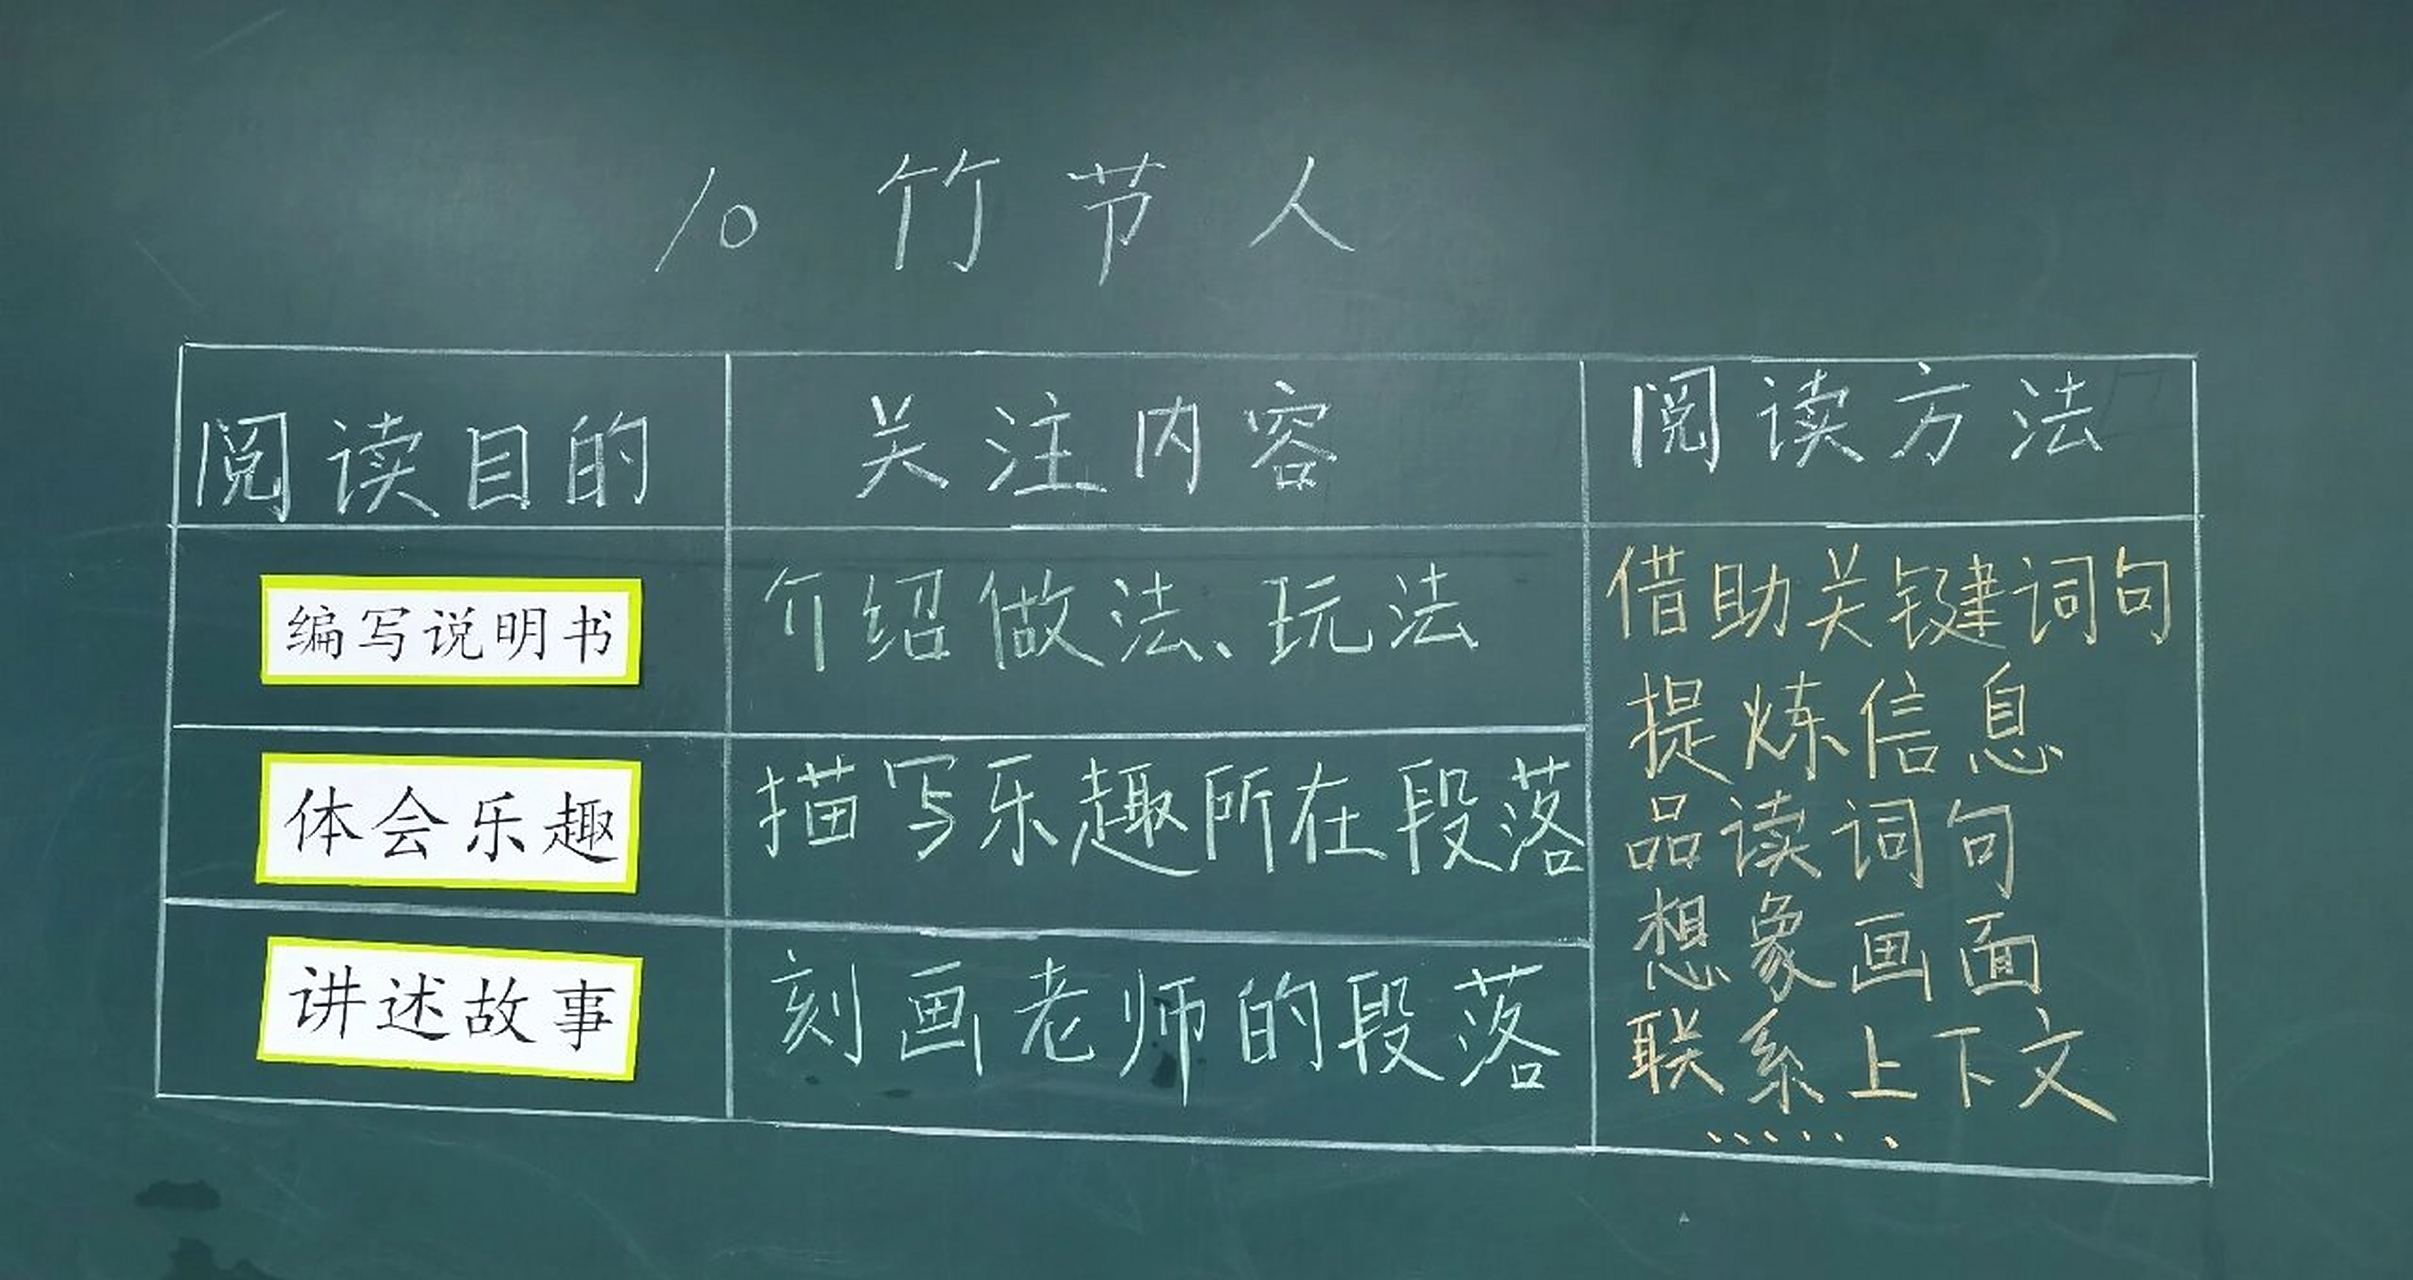 10 竹节人
阅读目的 关注内容 阅读方法
编写说明书 介绍做法、玩法 借助关键词句
提炼信息
体会乐趣 描写乐趣所在段落 品读词句
想象画面
讲述故事 刻画老师的段落 联系上下文
……